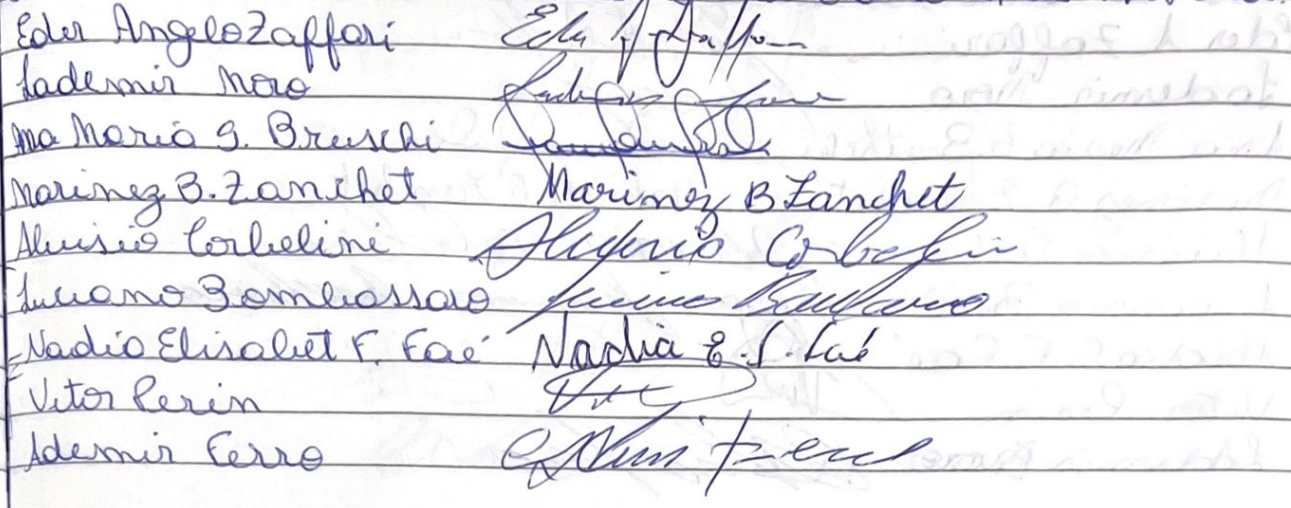 Eder Angelo Zaffari Eder A Zaffari
Lademir Moro
Ana Maria G. Bruschi
Marinez B. Zanchet Marinez B Zanchet
Aluisio Corbelini Aluisio Corbelini
Luciano Bombassaro Luciano Bombassaro
Nadia Elisabet F. Faé Nadia E. F. Faé
Vitor Perin
Ademir Ferro